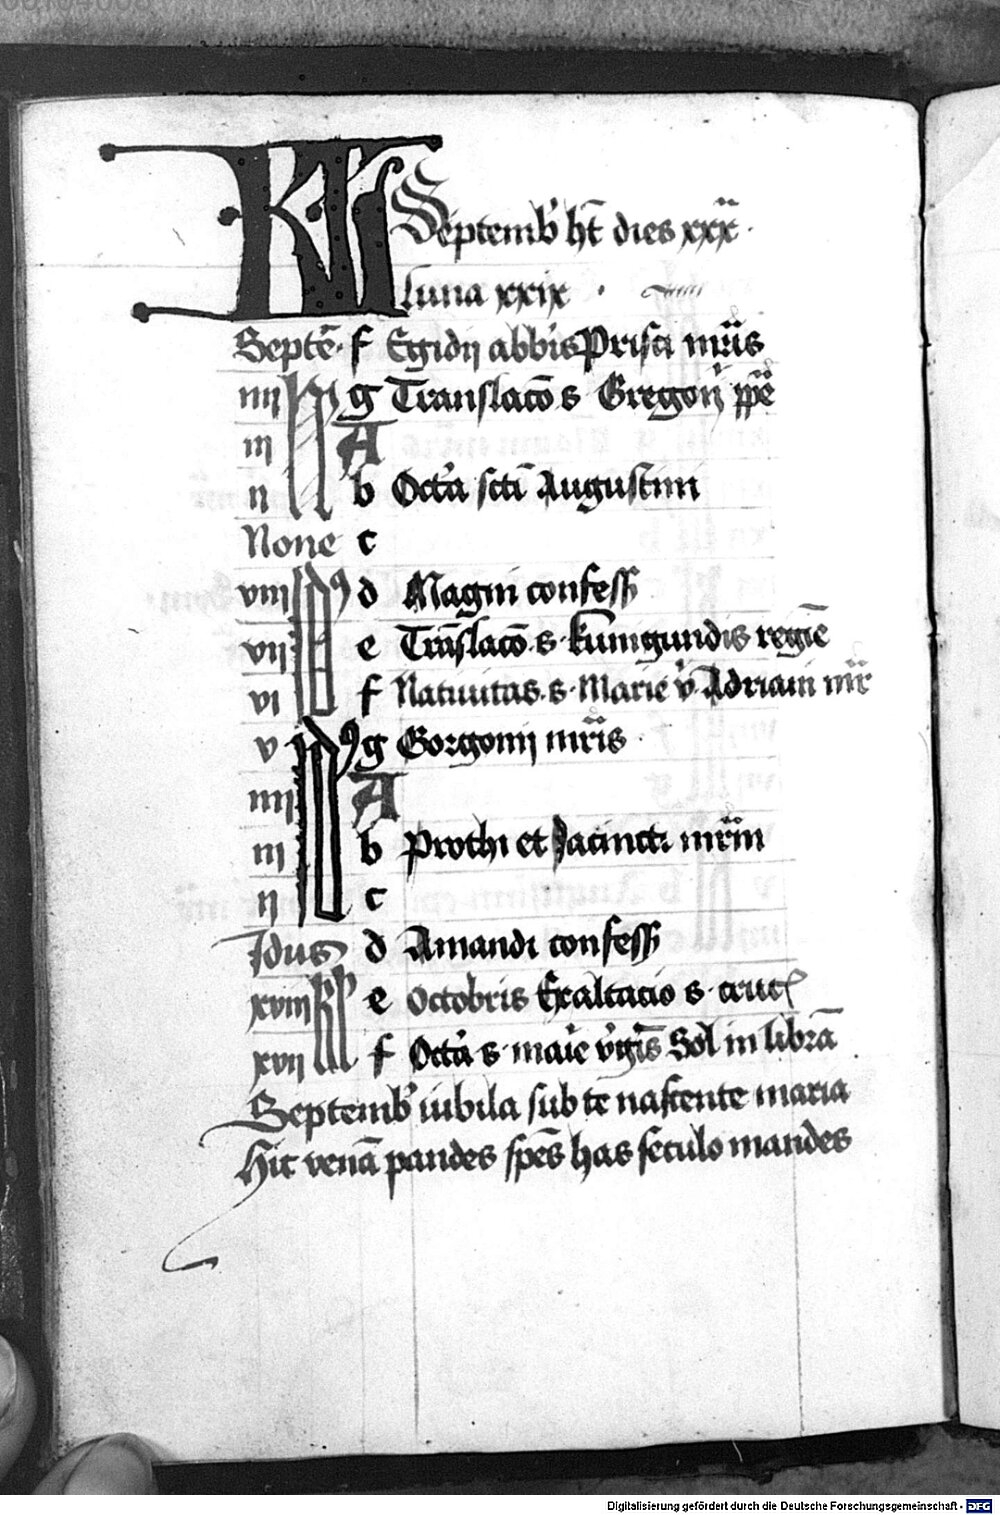 KL Septemb̓ ht̄ dies xxx
luna xxix
Septē f Egidij abb̄is Prisci mr̄is
iiij N g Translacō s Gregorij pp̄e
iij A
ij b Octā scti Augustini
None c
viij Idꝰ d Magni confess
vij e Trāslacō s kunigundis regīe
vi f Natiuitas s Marie v̓ Adriani mr̄
v Idꝰ g Gorgonij mr̄is
iiij A
iij b Prothi et Jacincti mr̄m
ij c
Idus d Amandi confess
xviij kl e Octobris Exaltacio s cruc
xvij f Octā s marie v̓gīs Sol in librā
Septemb̓ iubila sub te nascente maria
Hic venā pandes sp̄es has seculo mandes
Digitalisierung gefördert durch die Deutsche Forschungsgemeinschaft - DFG